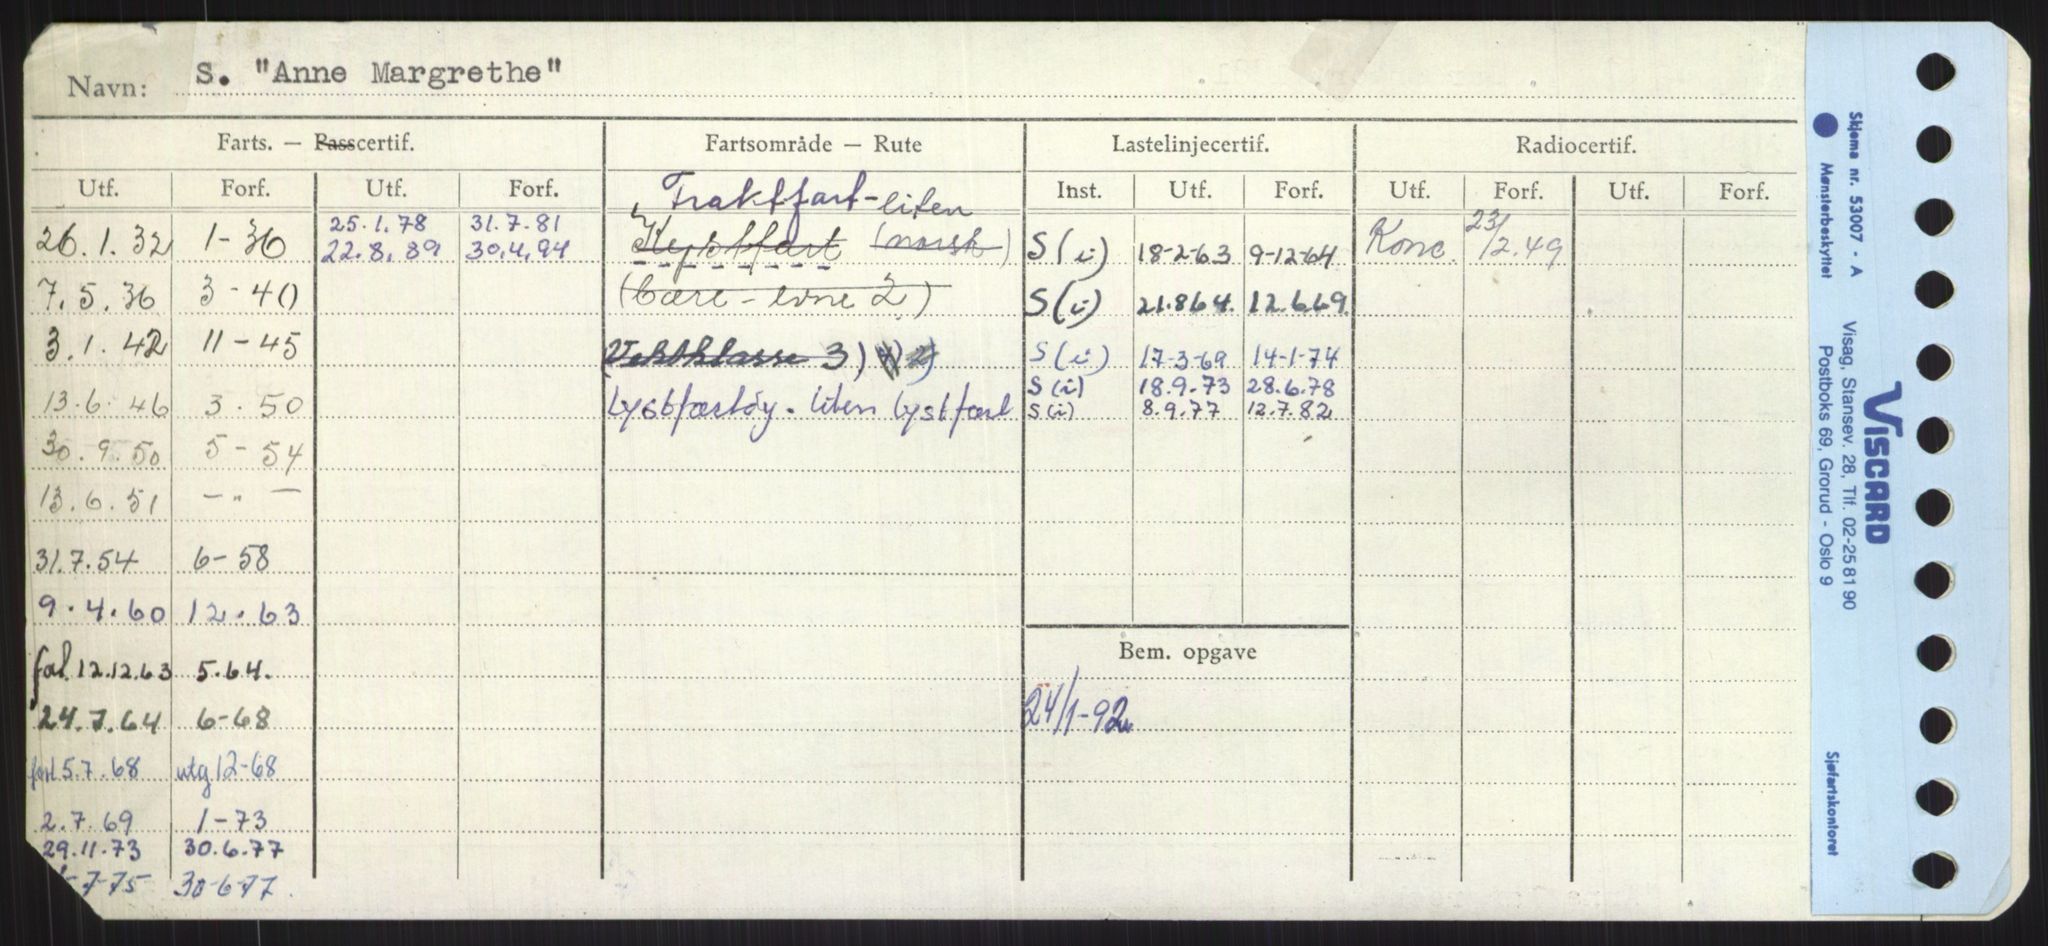 Navn: S. "Anne Margrethe"
Farts. — Passcertif. Fartsområde — Rute Lastelinjecertif. Radiocertif.
Utf. Forf. Utf. Forf. Fraktfart-liten Inst. Utf. Forf. Utf. Forf. Utf. Forf.
26.1.32 1-36 25.1.78 31.7.81 Kystfart (norsk) S(i) 18-2-63 9-12-64 Konc. 23/2.49
22.8.89 30.4.94
7.5.36 3-40 (bære-evne 2) S(i) 21.8.64. 12.6.69
3.1.42 11-45 (Vektklasse 3) 2) S(i) 17-3-69 14-1-74
S(i) 18.9.73 28.6.78
13.6.46 3.50 Lystfartøy. liten lystfart S(i) 8.9.77 12.7.82
30.9.50 5-54
13.6.51 — " —
31.7.54 6-58
9.4.60 12.63
Bem. opgave
12.12.63 5.64.
24.7.64 6-68 24/1-92
5.7.68 utg 12-68
2.7.69 1-73
29.11.73 30.6.77
-7-75 30-6-77.
Skjema nr. 53007 - A
Mønsterbeskyttet
VISCARD
Visag, Stansev. 28, Tlf. 02-25 81 90
Postboks 69, Grorud - Oslo 9
Sjøfartskontoret